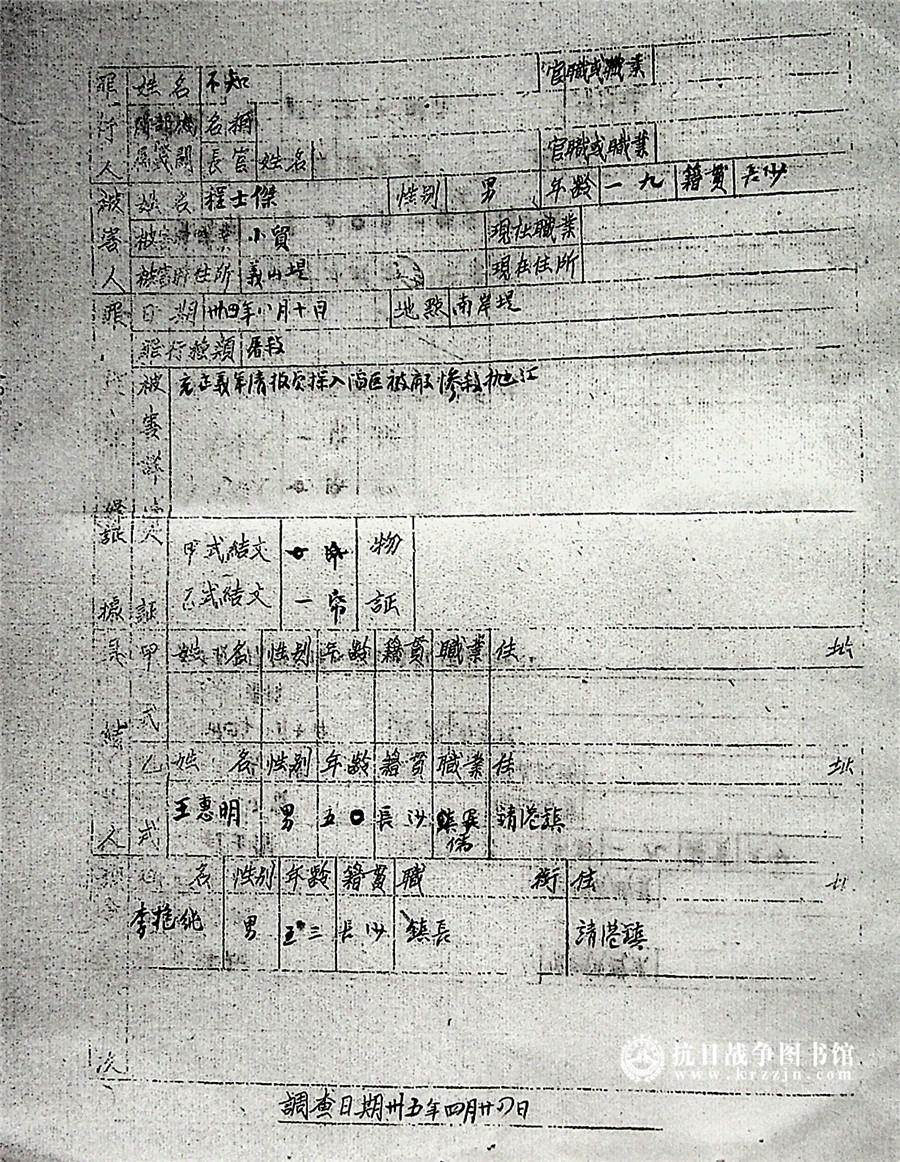 罪行人 姓名 不知 官職或職業
名稱
長官 姓名 官職或職業
被害人 姓名 程士傑 性別 男 年齡 一九 籍貫 長沙
被害時職業 小貿 現在職業
被害時住所 義山堤 現在住所
罪 日期 卅四年八月十日 地點 南岸堤
罪行種類 屠殺
被害詳
慘殺拋江
證據 人証 甲式結文 物証
乙式結文 一 㡧
具結人 甲式 姓名 性別 年齡 籍貫 職業 住址
乙式 姓名 性別 年齡 籍貫 職業 住址
王惠明 男 五〇 長沙 靖港鎮
名 性別 年齡 籍貫 職銜 住址
李 純 男 五三 長沙 鎮長 靖港鎮
調查日期卅五年四月廿四日
抗日战争图书馆
www.krzzjn.com